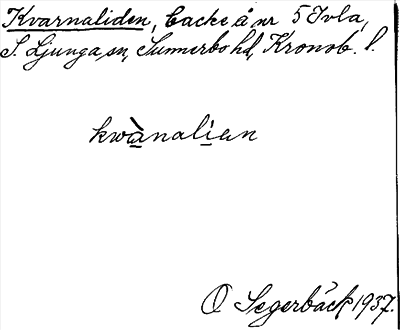 Kvarnaliden, backe å nr 5 Ivla,
S. Ljunga sn, Sunnerbo hd, Kronob. l.
kwànalian
O Segerbäck 1937.